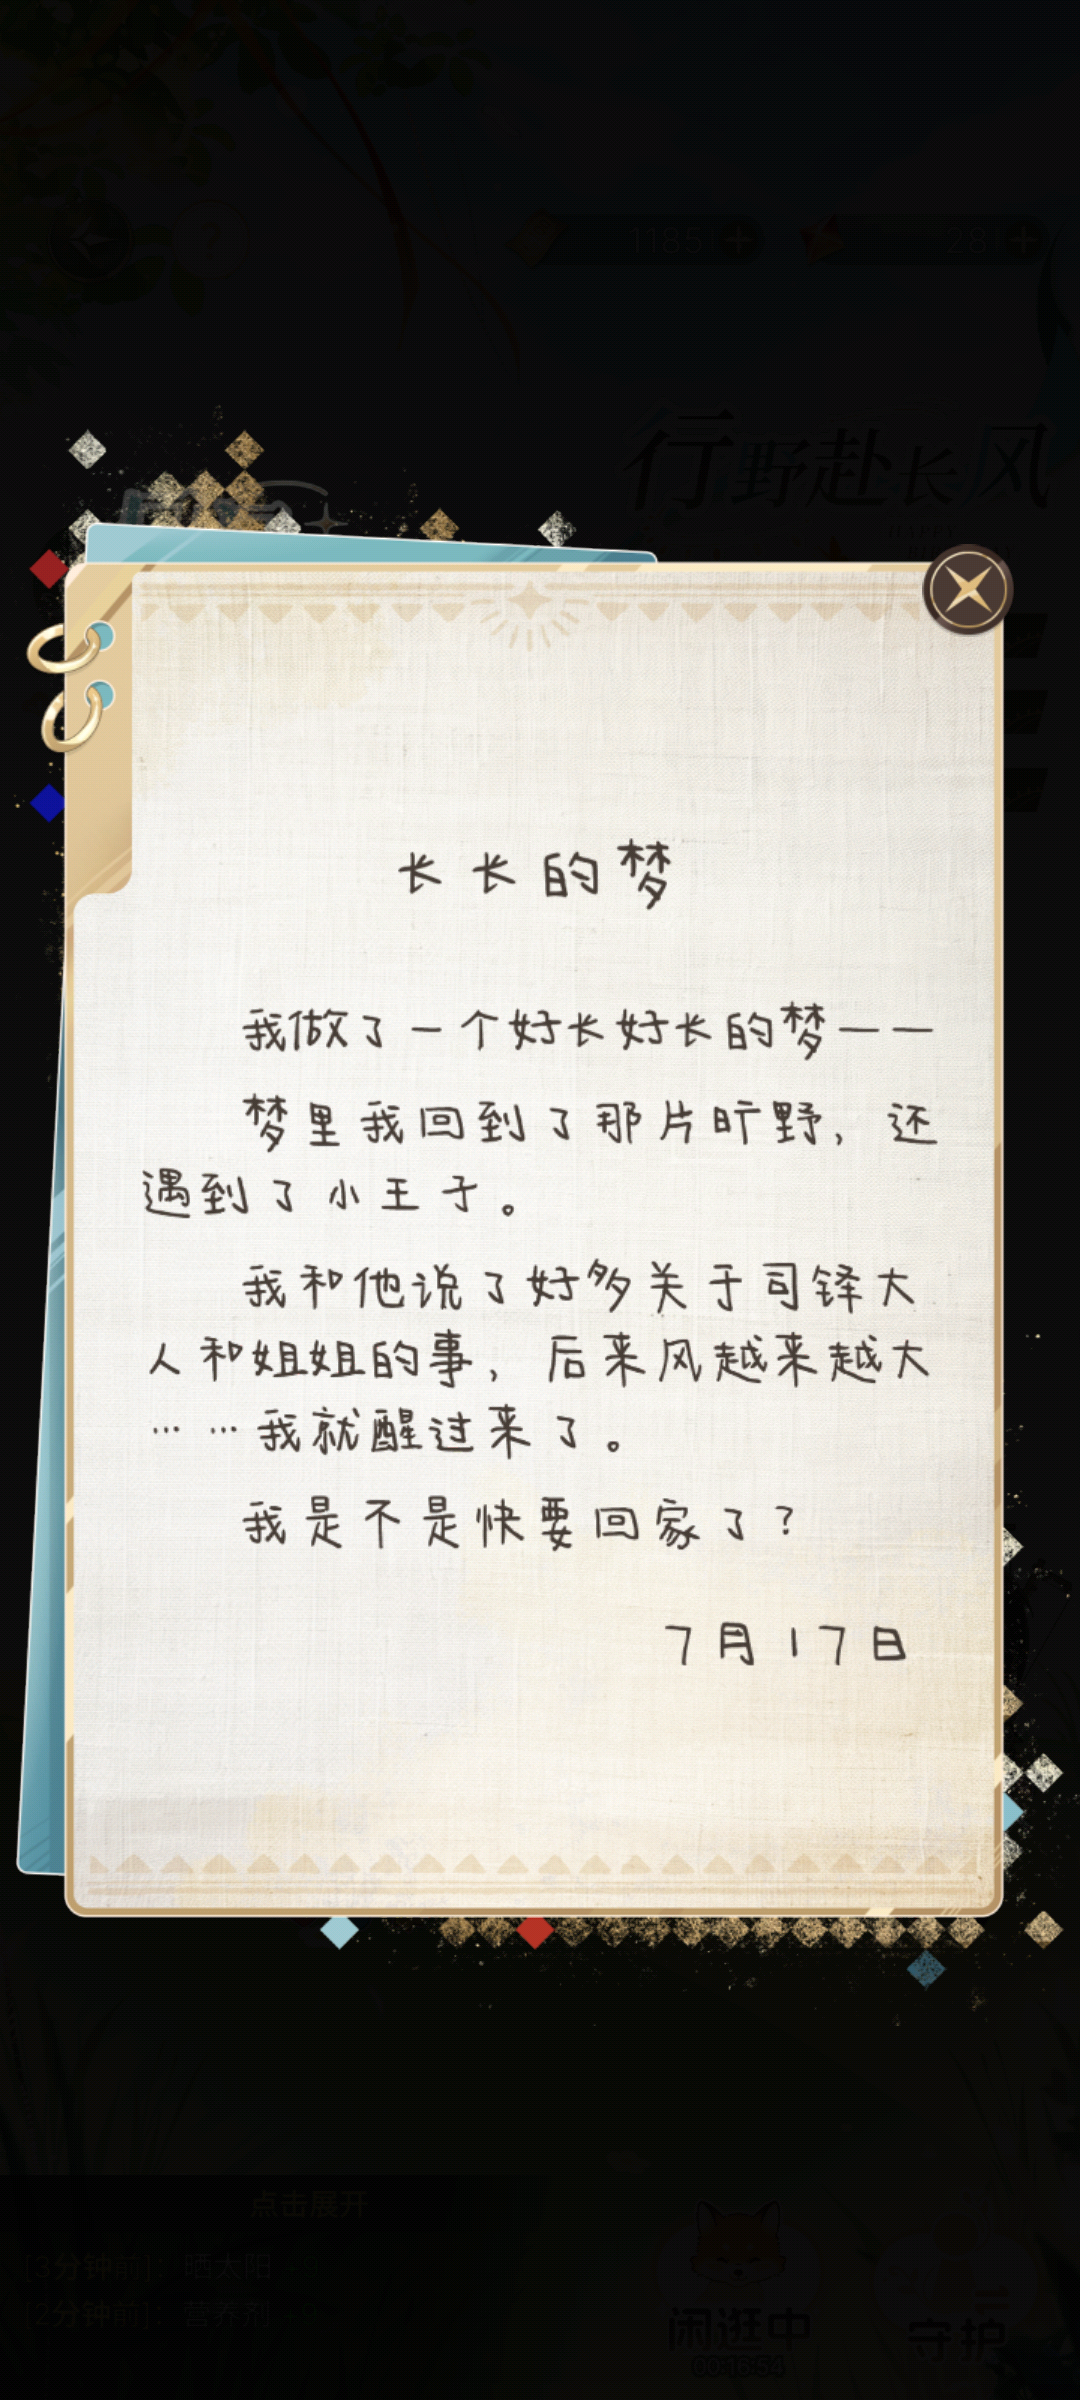 1185
28
行野赴长风
长长的梦
我做了一个好长好长的梦——
梦里我回到了那片旷野，还
遇到了小王子。
我和他说了好多关于司铎大
人和姐姐的事，后来风越来越大
……我就醒过来了。
我是不是快要回家了？
7月17日
点击展开
[3分钟前]：晒太阳 +9
[2分钟前]：营养剂 +9
闲逛中
守护
00:16:54